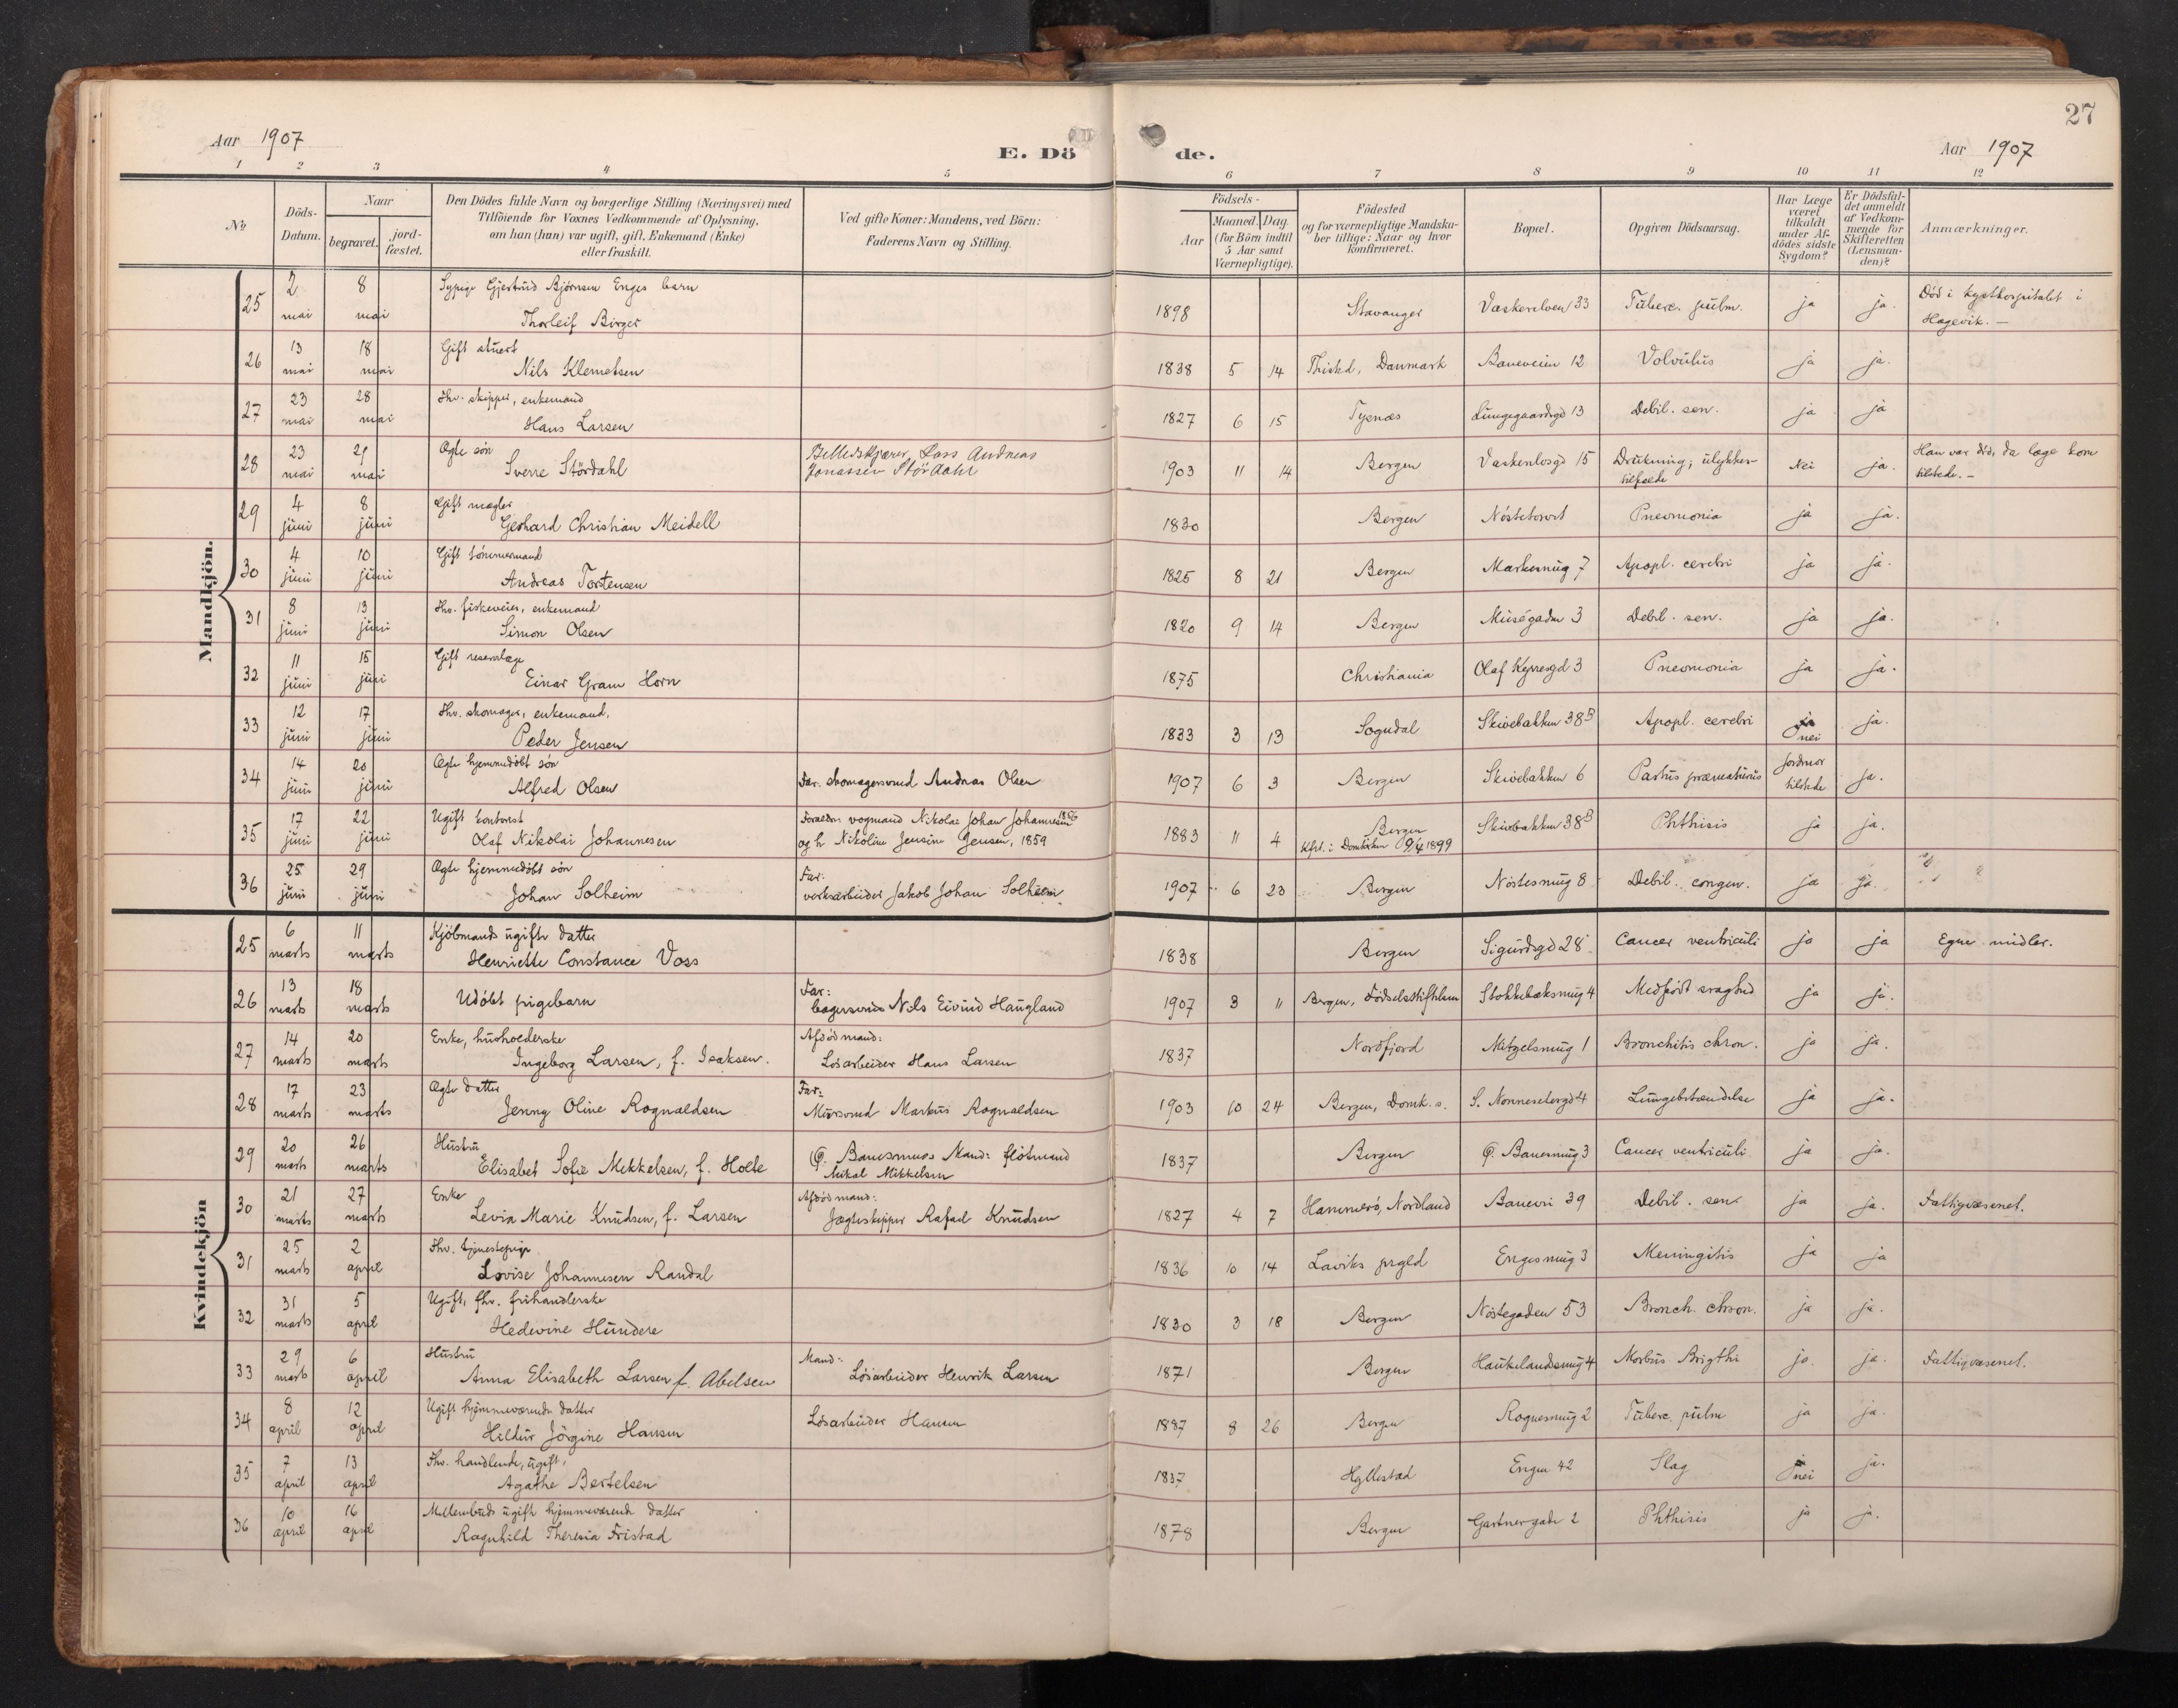 27
Aar 1907
E. Dö de.
Aar 1907
1 2 3 4 5 6 7 8 9 10 11 12
No
Döds-Datum.
Naar
begravet. jord-fæstet.
Den Dödes fulde Navn og borgerlige Stilling (Næringsvei) med
Tilföiende for Voxnes Vedkommende af Oplysning,
om han (hun) var ugift, gift, Enkemand (Enke)
eller fraskilt.
Ved gifte Koner: Mandens, ved Börn:
Faderens Navn og Stilling.
Födsels-
Aar
Maaned. Dag.
(for Börn indtil
5 Aar samt
Værnepligtige).
Födested
og for værnepligtige Mandska-
ber tillige: Naar og hvor
konfirmeret.
Bopæl.
Opgiven Dödsaarsag.
Har Læge
været
tilkaldt
under Af-
dödes sidste
Sygdom?
Er Dödsfal-
det anmeldt
af Vedkom-
mende for
Skifteretten
(Lensman-
den)?
Anmærkninger.
Mandkjön.
25 2 mai 8 mai Sypige Gjertrud Bjørnsen Enges barn
Thorleif Birger 1898 Stavanger Vaskerelven 33 Tuberc. pulm. ja ja. Död i kysthospitalet i
Hagevik. —
26 13 mai 18 mai Gift stuert
Nils Klemetsen 1838 5 14 Thisted, Danmark Baneveien 12 Volvulus ja ja.
27 23 mai 28 mai Fhv. skipper, enkemand
Hans Larsen 1827 6 15 Tysnæs Lungegaardsgd 13 Debil. sen. ja ja
28 23 mai 29 mai Ægte sön
Sverre Stördahl Billedskjærer Lars Andreas
Jonassen Stördahl 1903 11 14 Bergen 15 Drukning; ulykkes-
tilfælde Nei ja. Han var död, da læge kom
tilstede. —
29 4 juni 8 juni Gift mægler
Gerhard Christian Meidell 1830 Bergen Nöstetorvet Pneomonia ja ja.
30 4 juni 10 juni Gift tömmermand
Andreas Torstensen 1825 8 21 Bergen Markesmug 7 Apopl. cerebri ja ja.
31 8 juni 13 juni Fhv. fiskeveier, enkemand
Simon Olsen 1820 9 14 Bergen Muségaden 3 Debil. sen. ja ja.
32 11 juni 15 juni Gift reservelæge
Einar Gram Horn 1875 Christiania Olaf Kyrresgd 3 Pneomonia ja ja.
33 12 juni 17 juni Fhv. skomager, enkemand,
Peder Jensen 1833 3 13 Sogndal Skivebakken 38B Apopl. cerebri nei ja.
34 14 juni 20 juni Ægte hjemmedöbt sön
Alfred Olsen Far. skomagersvend Andreas Olsen 1907 6 3 Bergen Skivebakken 6 Partus præmaturus Jordmor
tilstede ja.
35 17 juni 22 juni Ugift kontorist
Olaf Nikolai Johannesen Foraeldre vognmand Nikolai Johan Johannesen 1856
og h. Nikoline Jensine Jensen, 1859 1883 11 4 Bergen
Kfrt. i Domkirken 9/4 1899 Skivebakken 38B Phthisis ja ja.
36 25 juni 29 juni Ægte hjemmedöbt sön
Johan Solheim Far:
verksarbeider Jakob Johan Solheim 1907 6 23 Bergen Nöstesmug 8 Debil. congen. ja ja.
Kvindekjön
25 6 marts 11 marts Kjöbmands ugifte datter
Henriette Constance Voss 1838 Bergen Sigurdsgd 28 Cancer ventriculi ja ja Egne midler.
26 13 marts 18 marts Udöbt pigebarn Far:
bagersvend Nils Eivind Haugland 1907 3 11 Bergen, Födselsstiftelsen Stokkebæksmug 4 Medfödt svaghed ja ja.
27 14 marts 20 marts Enke, husholderske
Ingeborg Larsen, f. Isaksen. Afdöd mand:
Lösarbeider Hans Larsen 1837 Nordfjord Nitzelsmug 1 Bronchitis chron. ja ja.
28 17 marts 23 marts Ægte datter
Jenny Oline Rognaldsen Far:
Mursvend Markus Rognaldsen 1903 10 24 Bergen, Domk. s. S. Nonnesetergd 4 Lungebetændelse ja ja.
29 20 marts 26 marts Hustru
Elisabet Sofie Mikkelsen, f. Holte Mand: flötmand
Mikal Mikkelsen 1837 Bergen Ö. Banesmug 3 Cancer ventriculi ja ja.
30 21 marts 27 marts Enke
Levia Marie Knudsen, f. Larsen Afdöd mand:
Jægteskipper Rafael Knudsen 1827 4 7 Hammerö, Nordland Banevei 39 Debil. sen. ja ja. Fattigvæsenet.
31 25 marts 2 april Fhv. tjenestepige
Lovise Johannesen Randal 1836 10 14 Laviks prgld Engesmug 3 Meningitis ja ja
32 31 marts 5 april Ugift, fhv. frihandlerske
Hedevine Hundere 1830 3 18 Bergen Nöstegaden 53 Bronch. chron. ja ja.
33 29 marts 6 april Hustru
Anna Elisabeth Larsen f. Abelsen Mand:
Lösarbeider Henrik Larsen 1871 Bergen Haukelandsmug 4 Morbus Brigthi ja. ja. Fattigvæsenet.
34 8 april 12 april Ugift hjemmeværende datter
Hildur Jörgine Hansen Lösarbeider Hansen 1887 8 26 Bergen Rognesmug 2 Tuberc. pulm ja ja.
35 7 april 13 april Fhv. handlende, ugift,
Agathe Bertelsen 1837 Hyllestad Engen 42 Slag nei ja.
36 10 april 16 april Mellembuds ugift hjemmeværende datter
Ragnhild Theresia Fristad 1878 Bergen Gartnergade 2 Phthisis ja ja.